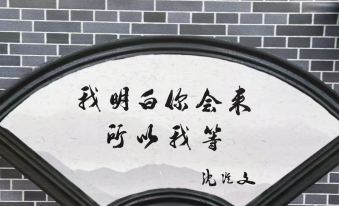 我明白你会来
所以我等
沈从文